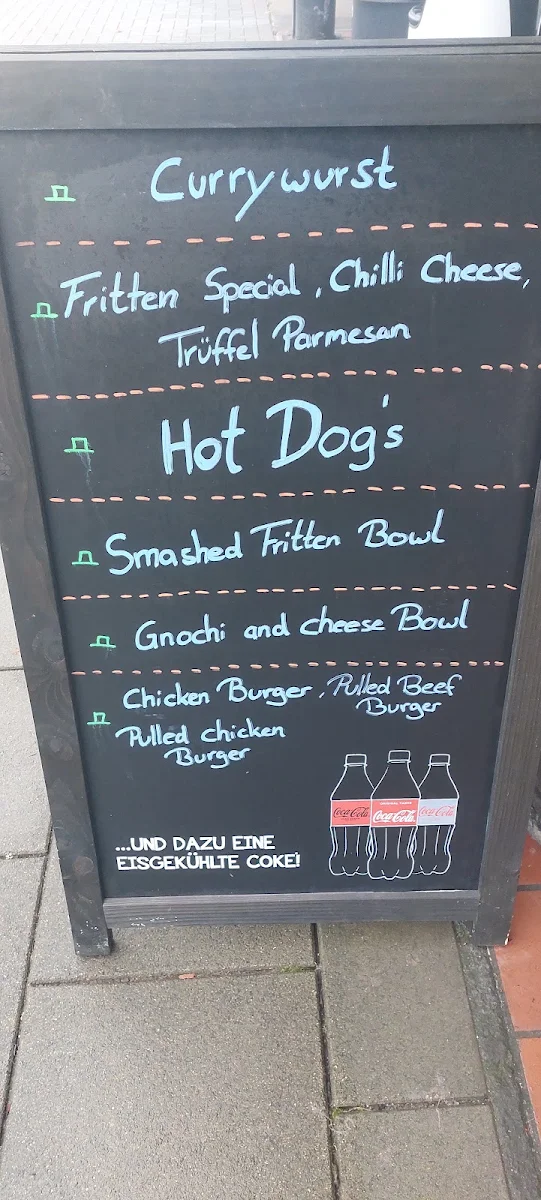 Currywurst
Fritten Special, Chilli Cheese,
Trüffel Parmesan
Hot Dog's
Smashed Fritten Bowl
Gnochi and cheese Bowl
Chicken Burger, Pulled Beef
Burger
Pulled chicken
Burger
...UND DAZU EINE
EISGEKÜHLTE COKE!
Coca-Cola Coca-Cola Coca-Cola